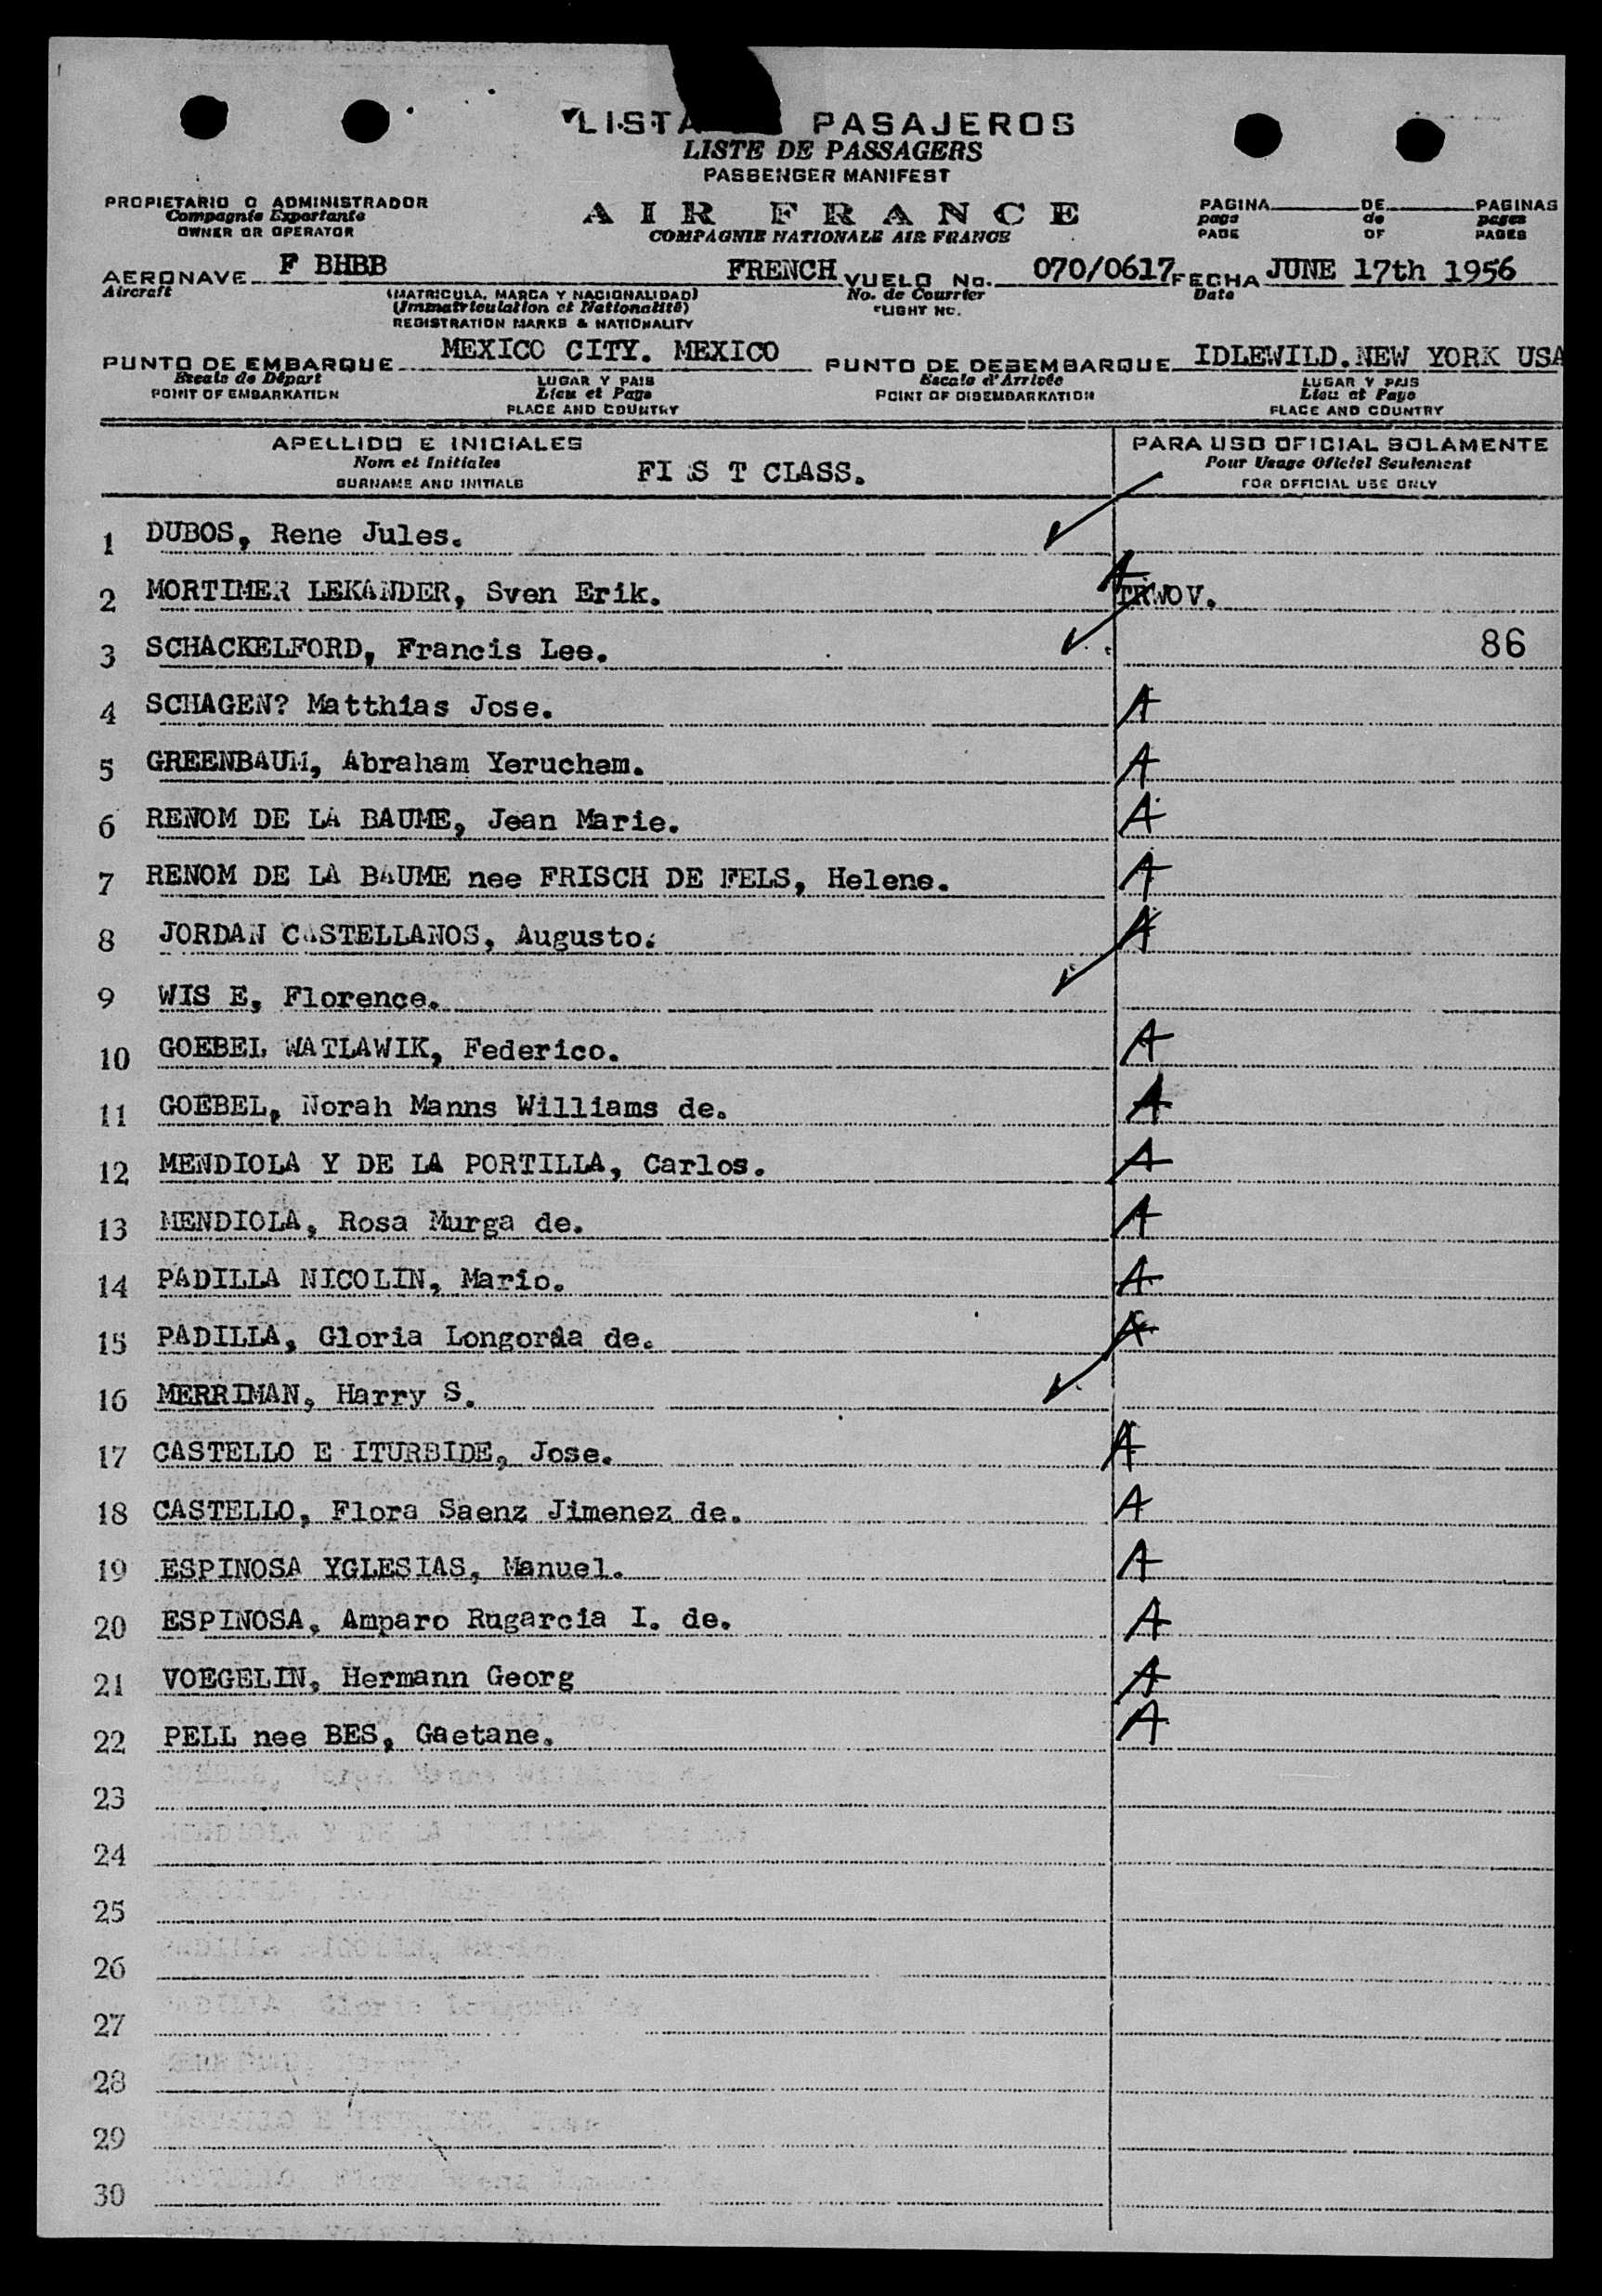 LISTA PASAJEROS
LISTE DE PASSAGERS
PASSENGER MANIFEST
PROPIETARIO O ADMINISTRADOR
Compagnie Exportante
OWNER OR OPERATOR
AIR FRANCE
COMPAGNIE NATIONALE AIR FRANCE
PAGINA DE PAGINAS
page de pages
PAGE OF PAGES
AERONAVE F BHBB FRENCH VUELO No. 070/0617 FECHA JUNE 17th 1956
Aircraft (MATRICULA, MARCA Y NACIONALIDAD) No. de Courrier Date
(Immatriculation et Nationalité) FLIGHT NO.
REGISTRATION MARKS & NATIONALITY
PUNTO DE EMBARQUE MEXICO CITY. MEXICO PUNTO DE DESEMBARQUE IDLEWILD.NEW YORK USA
Escale de Départ LUGAR Y PAIS Escale d'Arrivée LUGAR Y PAIS
POINT OF EMBARKATION Lieu et Pays POINT OF DISEMBARKATION Lieu et Pays
PLACE AND COUNTRY PLACE AND COUNTRY
APELLIDO E INICIALES PARA USO OFICIAL SOLAMENTE
Nom et Initiales FI S T CLASS. Pour Usage Oficiel Seulement
SURNAME AND INITIALS FOR OFFICIAL USE ONLY
1 DUBOS, Rene Jules.
2 MORTIMER LEKANDER, Sven Erik. A TRWOV.
3 SCHACKELFORD, Francis Lee. 86
4 SCHAGEN? Matthias Jose. A
5 GREENBAUM, Abraham Yeruchem. A
6 RENOM DE LA BAUME, Jean Marie. A
7 RENOM DE LA BAUME nee FRISCH DE FELS, Helene. A
8 JORDAN CASTELLANOS, Augusto. A
9 WIS E, Florence.
10 GOEBEL WATLAWIK, Federico. A
11 GOEBEL, Norah Manns Williams de. A
12 MENDIOLA Y DE LA PORTILLA, Carlos. A
13 MENDIOLA, Rosa Murga de. A
14 PADILLA NICOLIN, Mario. A
15 PADILLA, Gloria Longoria de. A
16 MERRIMAN, Harry S.
17 CASTELLO E ITURBIDE, Jose. A
18 CASTELLO, Flora Saenz Jimenez de. A
19 ESPINOSA YGLESIAS, Manuel. A
20 ESPINOSA, Amparo Rugarcia I. de. A
21 VOEGELIN, Hermann Georg A
22 PELL nee BES, Gaetane. A
23
24
25
26
27
28
29
30